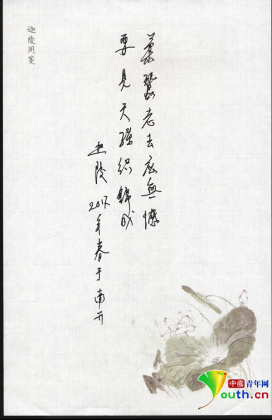 柔蠶老去应無憾
要見天孫織錦成
迦陵 2017年春于南开
迦陵用箋
中国青年网
youth.cn